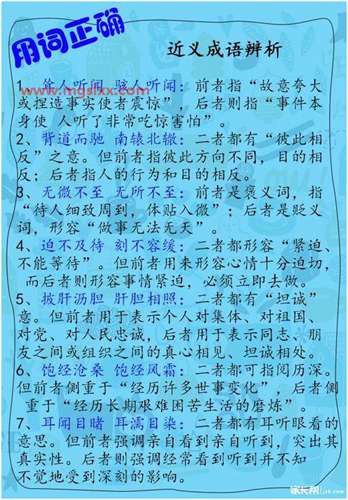 用词正确
近义成语辨析
www.mgslxx.com
1、耸人听闻 骇人听闻：前者指“故意夸大
或捏造事实使者震惊”，后者则指“事件本
身使 人听了非常吃惊害怕”。
2、背道而驰 南辕北辙：二者都有“彼此相
反”之意。但前者指彼此方向不同，目的相
反；后者指人的行为和目的相反。
3、无微不至 无所不至：前者是褒义词，指
“待人细致周到，体贴入微”；后者是贬义
词，形容“做事无法无天”。
4、迫不及待 刻不容缓：二者都形容“紧迫、
不能等待”。但前者用来形容心情十分迫切，
而后者则形容事情紧迫，必须立即去做。
5、披肝沥胆 肝胆相照：二者都有“坦诚”
意。但前者用于表示个人对集体、对祖国、
对党、对人民忠诚，后者用于表示同志、朋
友之间或组织之间的真心相见、坦诚相处。
6、饱经沧桑 饱经风霜：二者都可指阅历深。
但前者侧重于“经历许多世事变化”，后者侧
重于“经历长期艰难困苦生活的磨炼”。
7、耳闻目睹 耳濡目染：二者都有耳听眼看的
意思。但前者强调亲自看到亲自听到，突出其
真实性。后者则强调经常看到听到并不知
不觉地受到深刻的影响。
家长帮